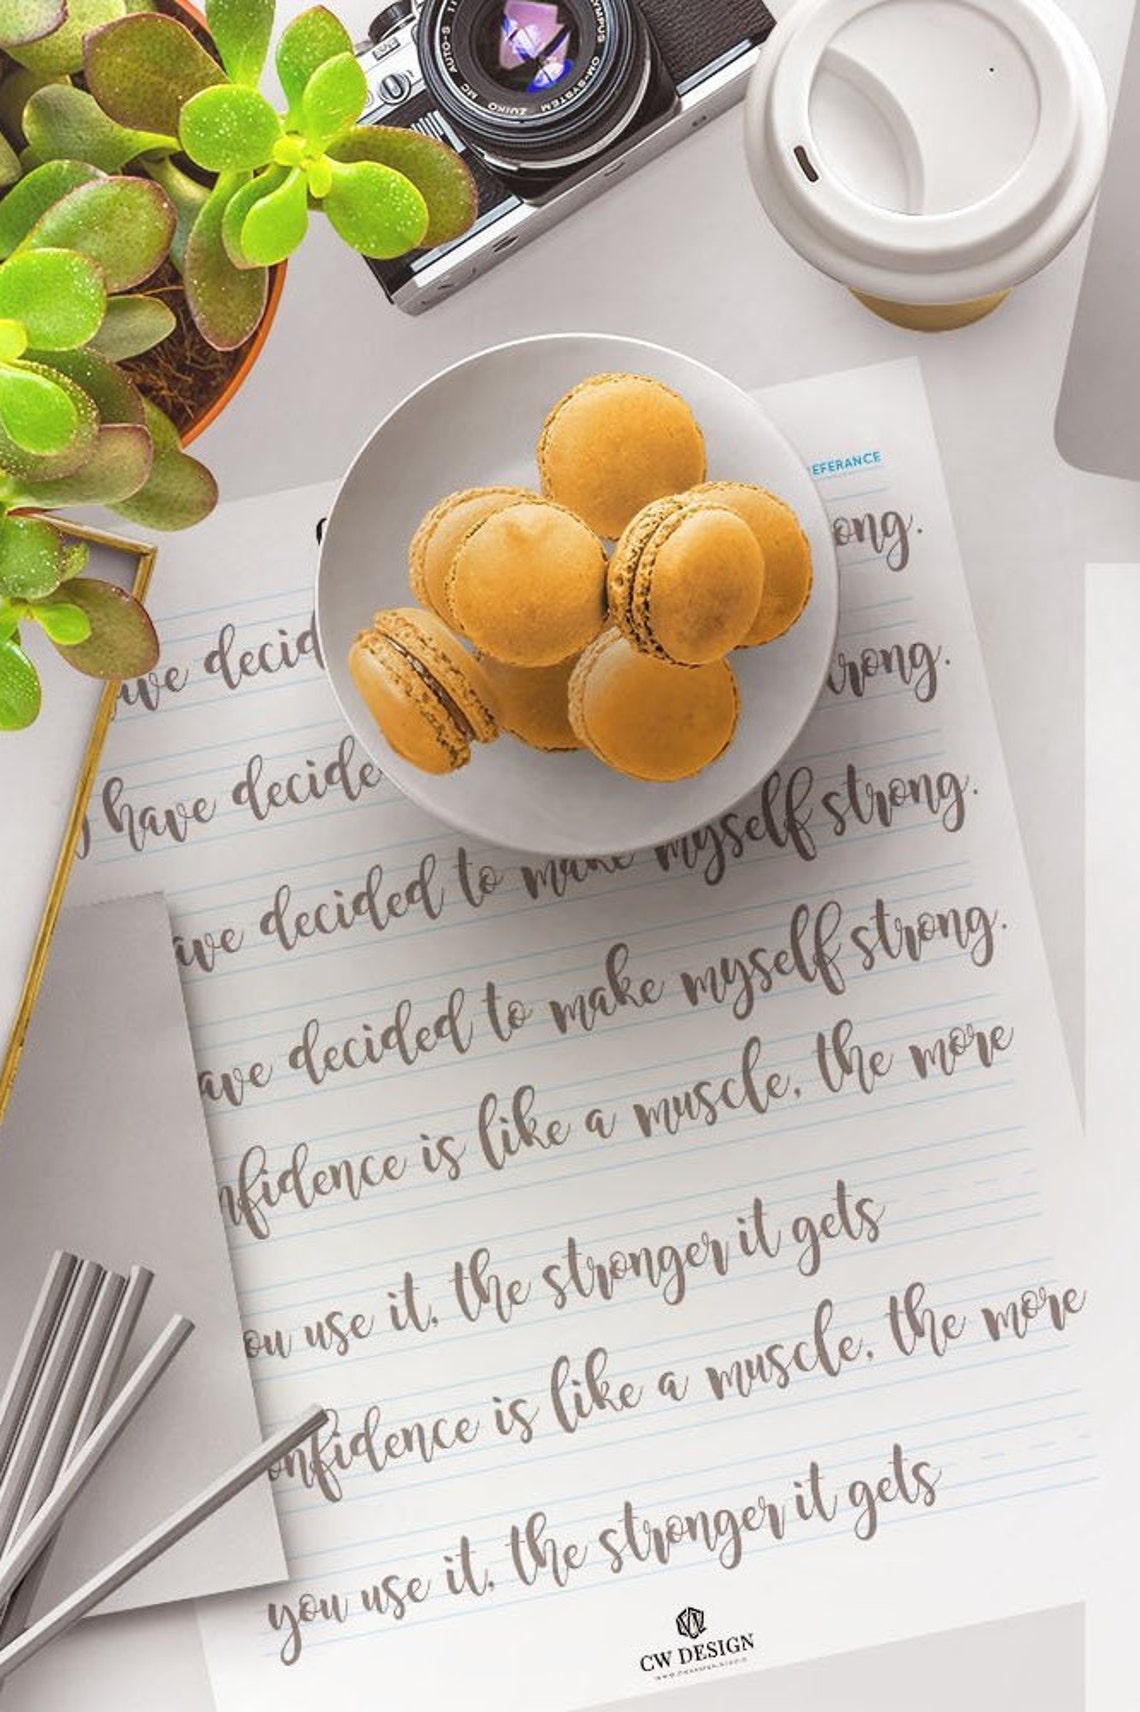 MC AUTO-S ZUIKO OLYMPUS OM-SYSTEM
EFERANCE
ong.
ve decid
rong.
have decide
myself strong.
ave decided to make
ave decided to make myself strong.
nfidence is like a muscle, the more
ou use it, the stronger it gets
onfidence is like a muscle, the more
you use it, the stronger it gets
CW DESIGN